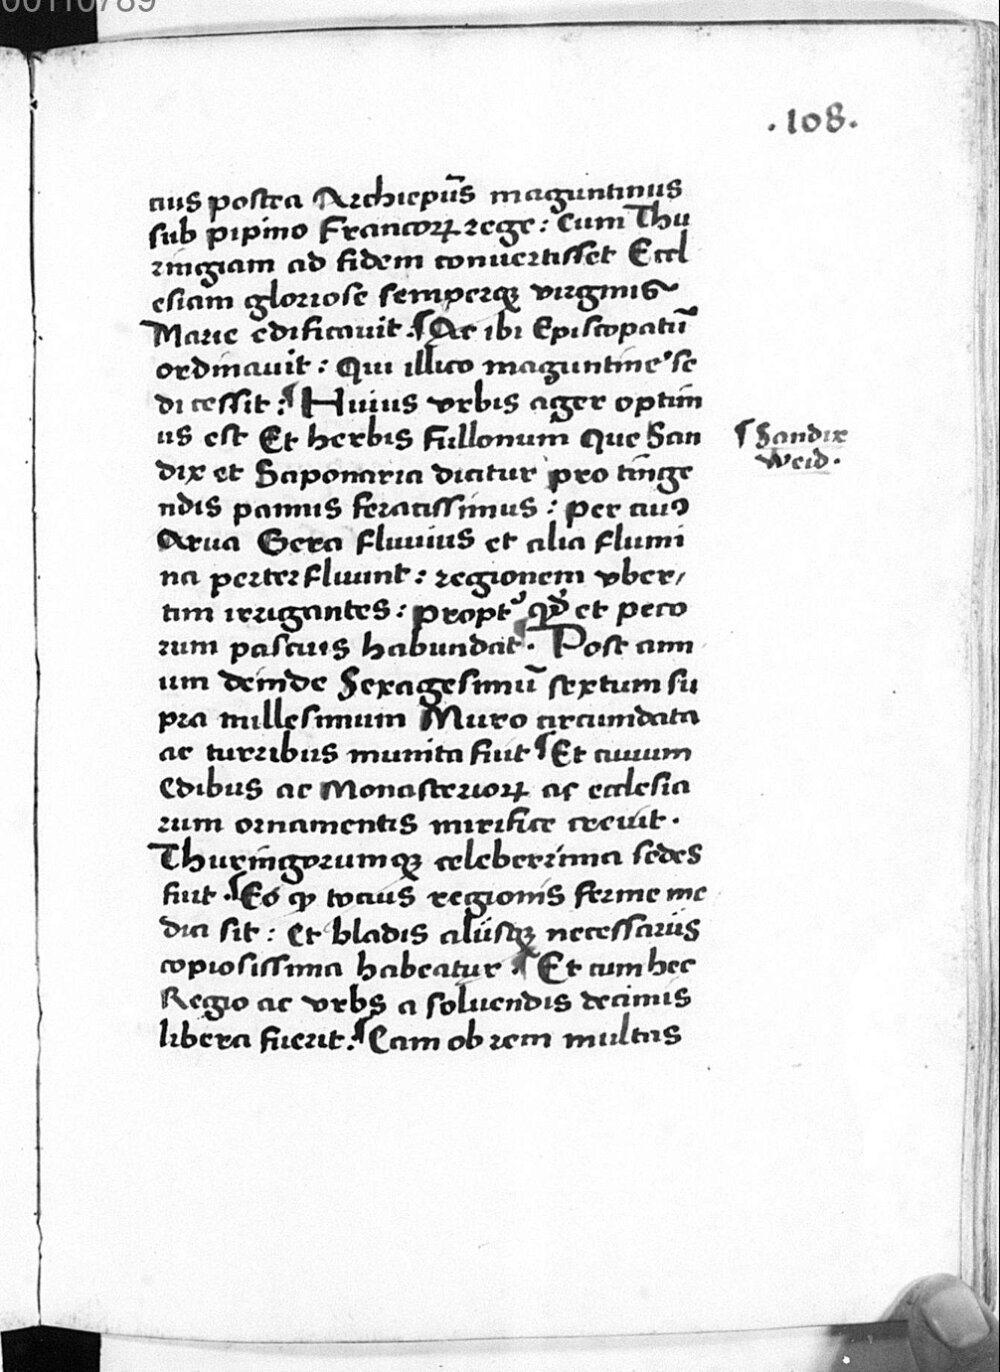 00110789
.108.
cius postea Archiepũs maguntinus
sub pipino Francorꝝ rege: Cum Thu
ringiam ad fidem conuertisset Eccl
esiam gloriose semperqꝫ virginis
Marie edificauit. ¶ Ac ibi Episcopatũ
ordinauit: Qui illico maguntine se
di cessit: ¶ Huius vrbis ager optim
us est Et herbis Fullonum Que San
dix et Saponaria dicitur pro tinge
ndis pannis feracissimus: per cuiꝰ
Arua Gera Fluuius et alia flumi
na perterfluunt: regionem vber/
tim irrigantes: propt᾽ qḋ et peco
rum pascuis habundat. ¶ Post ann
um deinde Sexagesimũ sextum su
pra millesimum Muro circumdata
ac turribus munita fuit ¶ Et ciuium
Edibus ac Monasteriorꝝ ac ecclesia
rum ornamentis mirifice creuit.
Thuringorumqꝫ celeberrima sedes
fuit. ¶ Eo ꝙ tocius regionis ferme me
dia sit: Et bladis alijsqꝫ necessarijs
copiosissima habeatur. ¶ Et cum hec
Regio ac vrbs a soluendis decimis
libera fuerit: ¶ Cam ob rem multas
¶ Sandix
Weid.